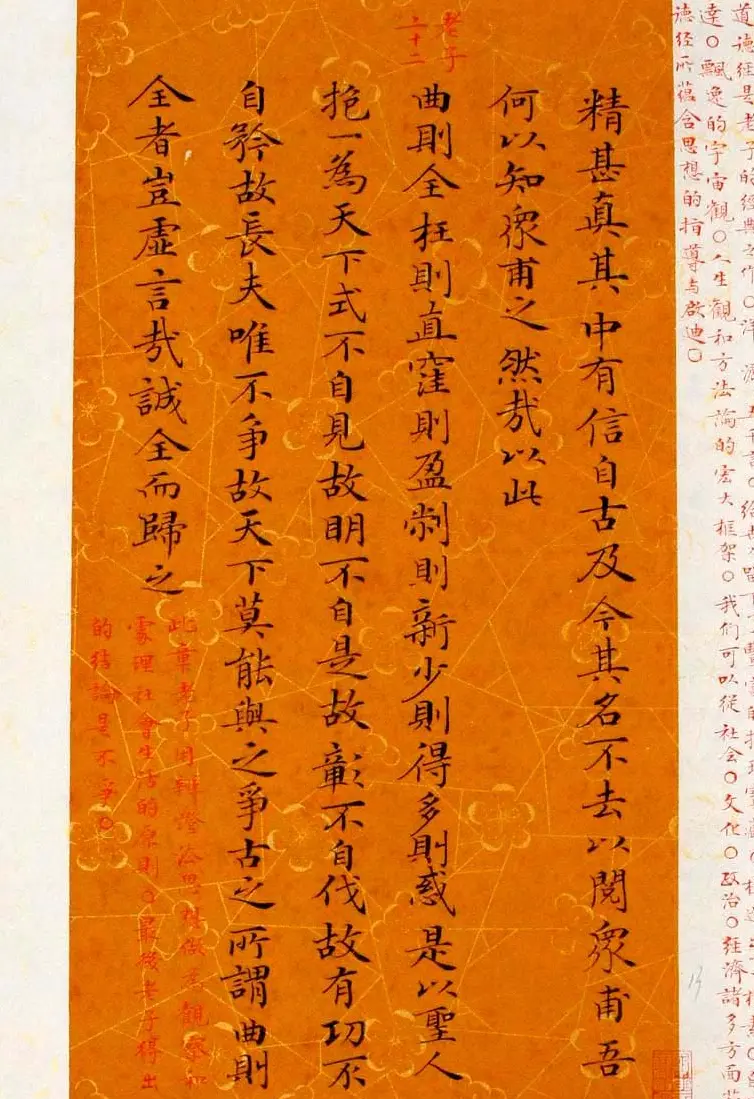 道德经是老子的經典之作〇洋洒五千言〇给
達〇飘逸的宇宙觀〇人生觀和方法論的宏大框架〇我们可以從社会〇文化〇政治〇经濟諸多方面
德经所蕴含思想的指導与啟迪〇
精甚真其中有信自古及今其名不去以閱衆甫吾
何以知衆甫之然哉以此
老子
二十二
曲則全枉則直窪則盈弊則新少則得多則惑是以聖人
抱一為天下式不自見故明不自是故彰不自伐故有功不
自矜故長夫唯不爭故天下莫能與之爭古之所謂曲則
全者豈虛言哉誠全而歸之
此章老子用辩證法思想做為觀察和
處理社會生活的原則〇最後老子得出
的结論是不爭〇